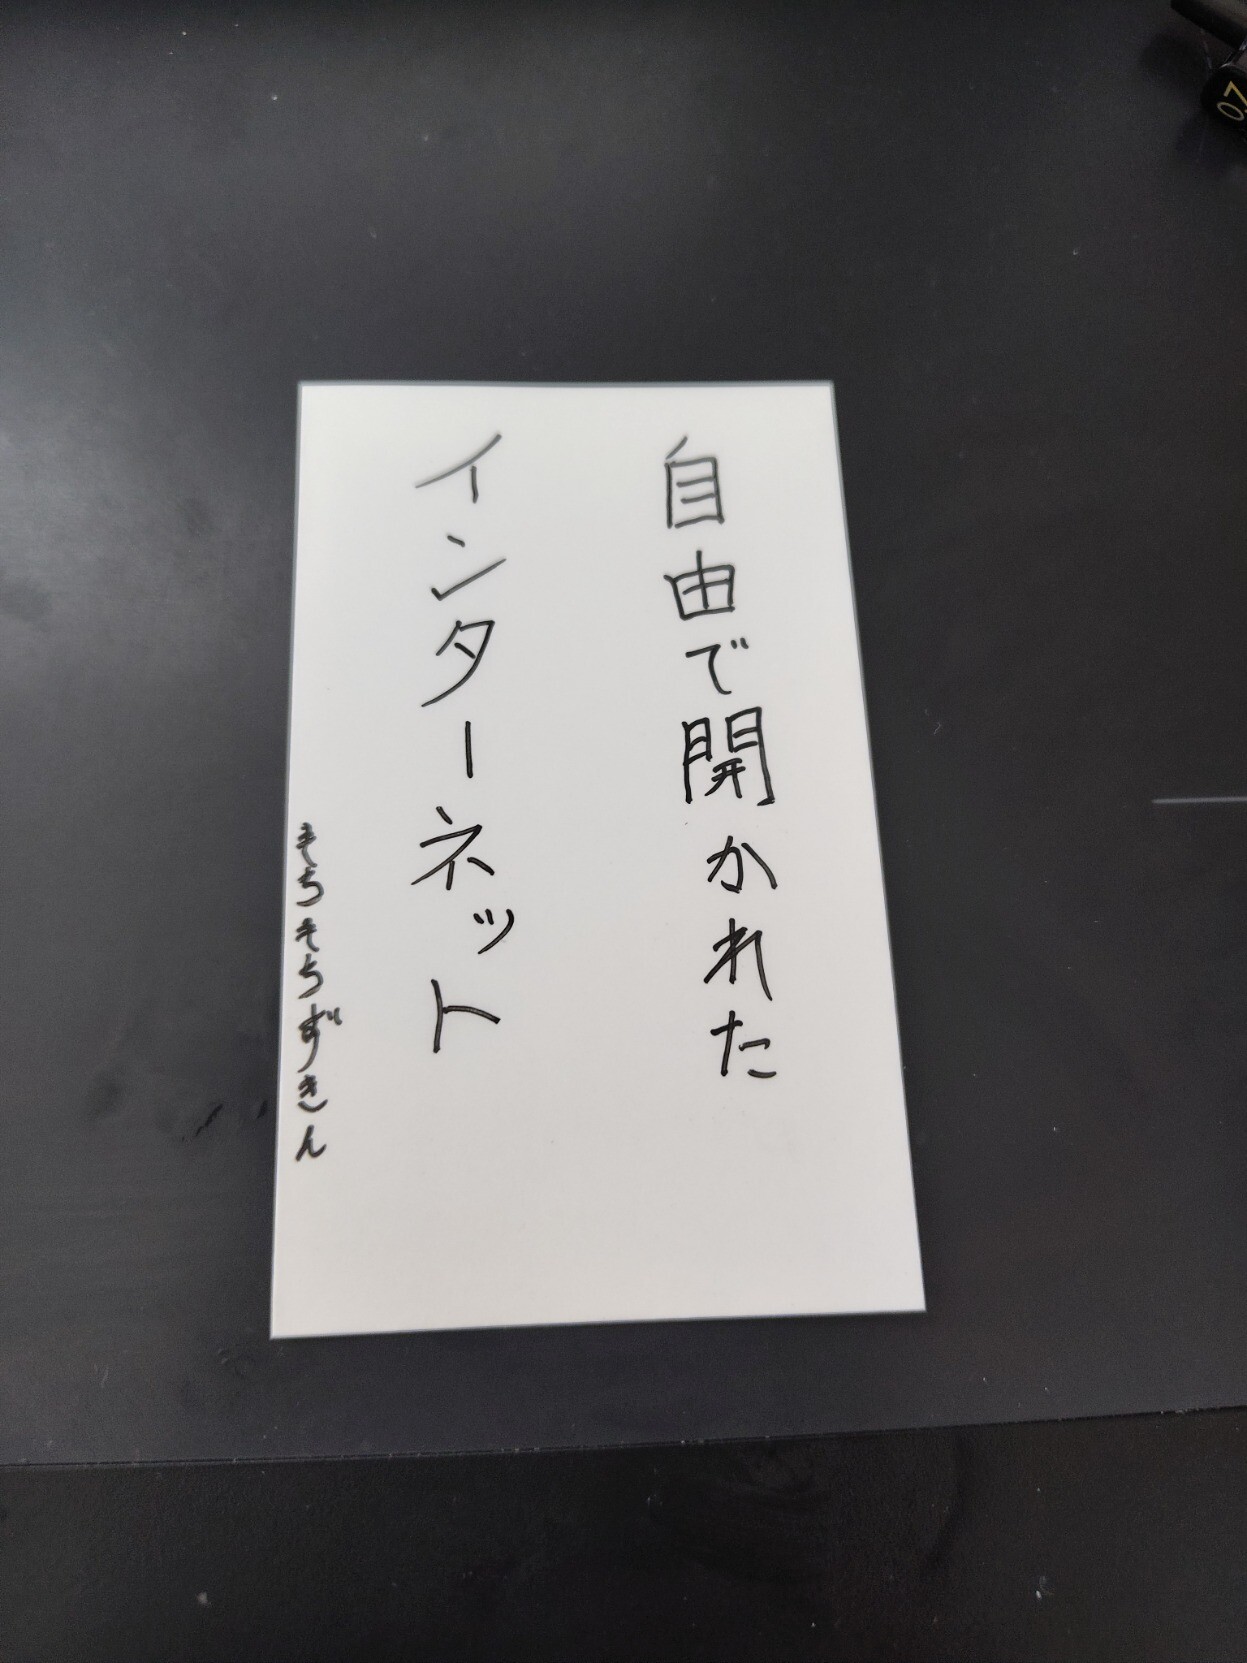 自由で開かれた
インターネット
もちもちずきん
07